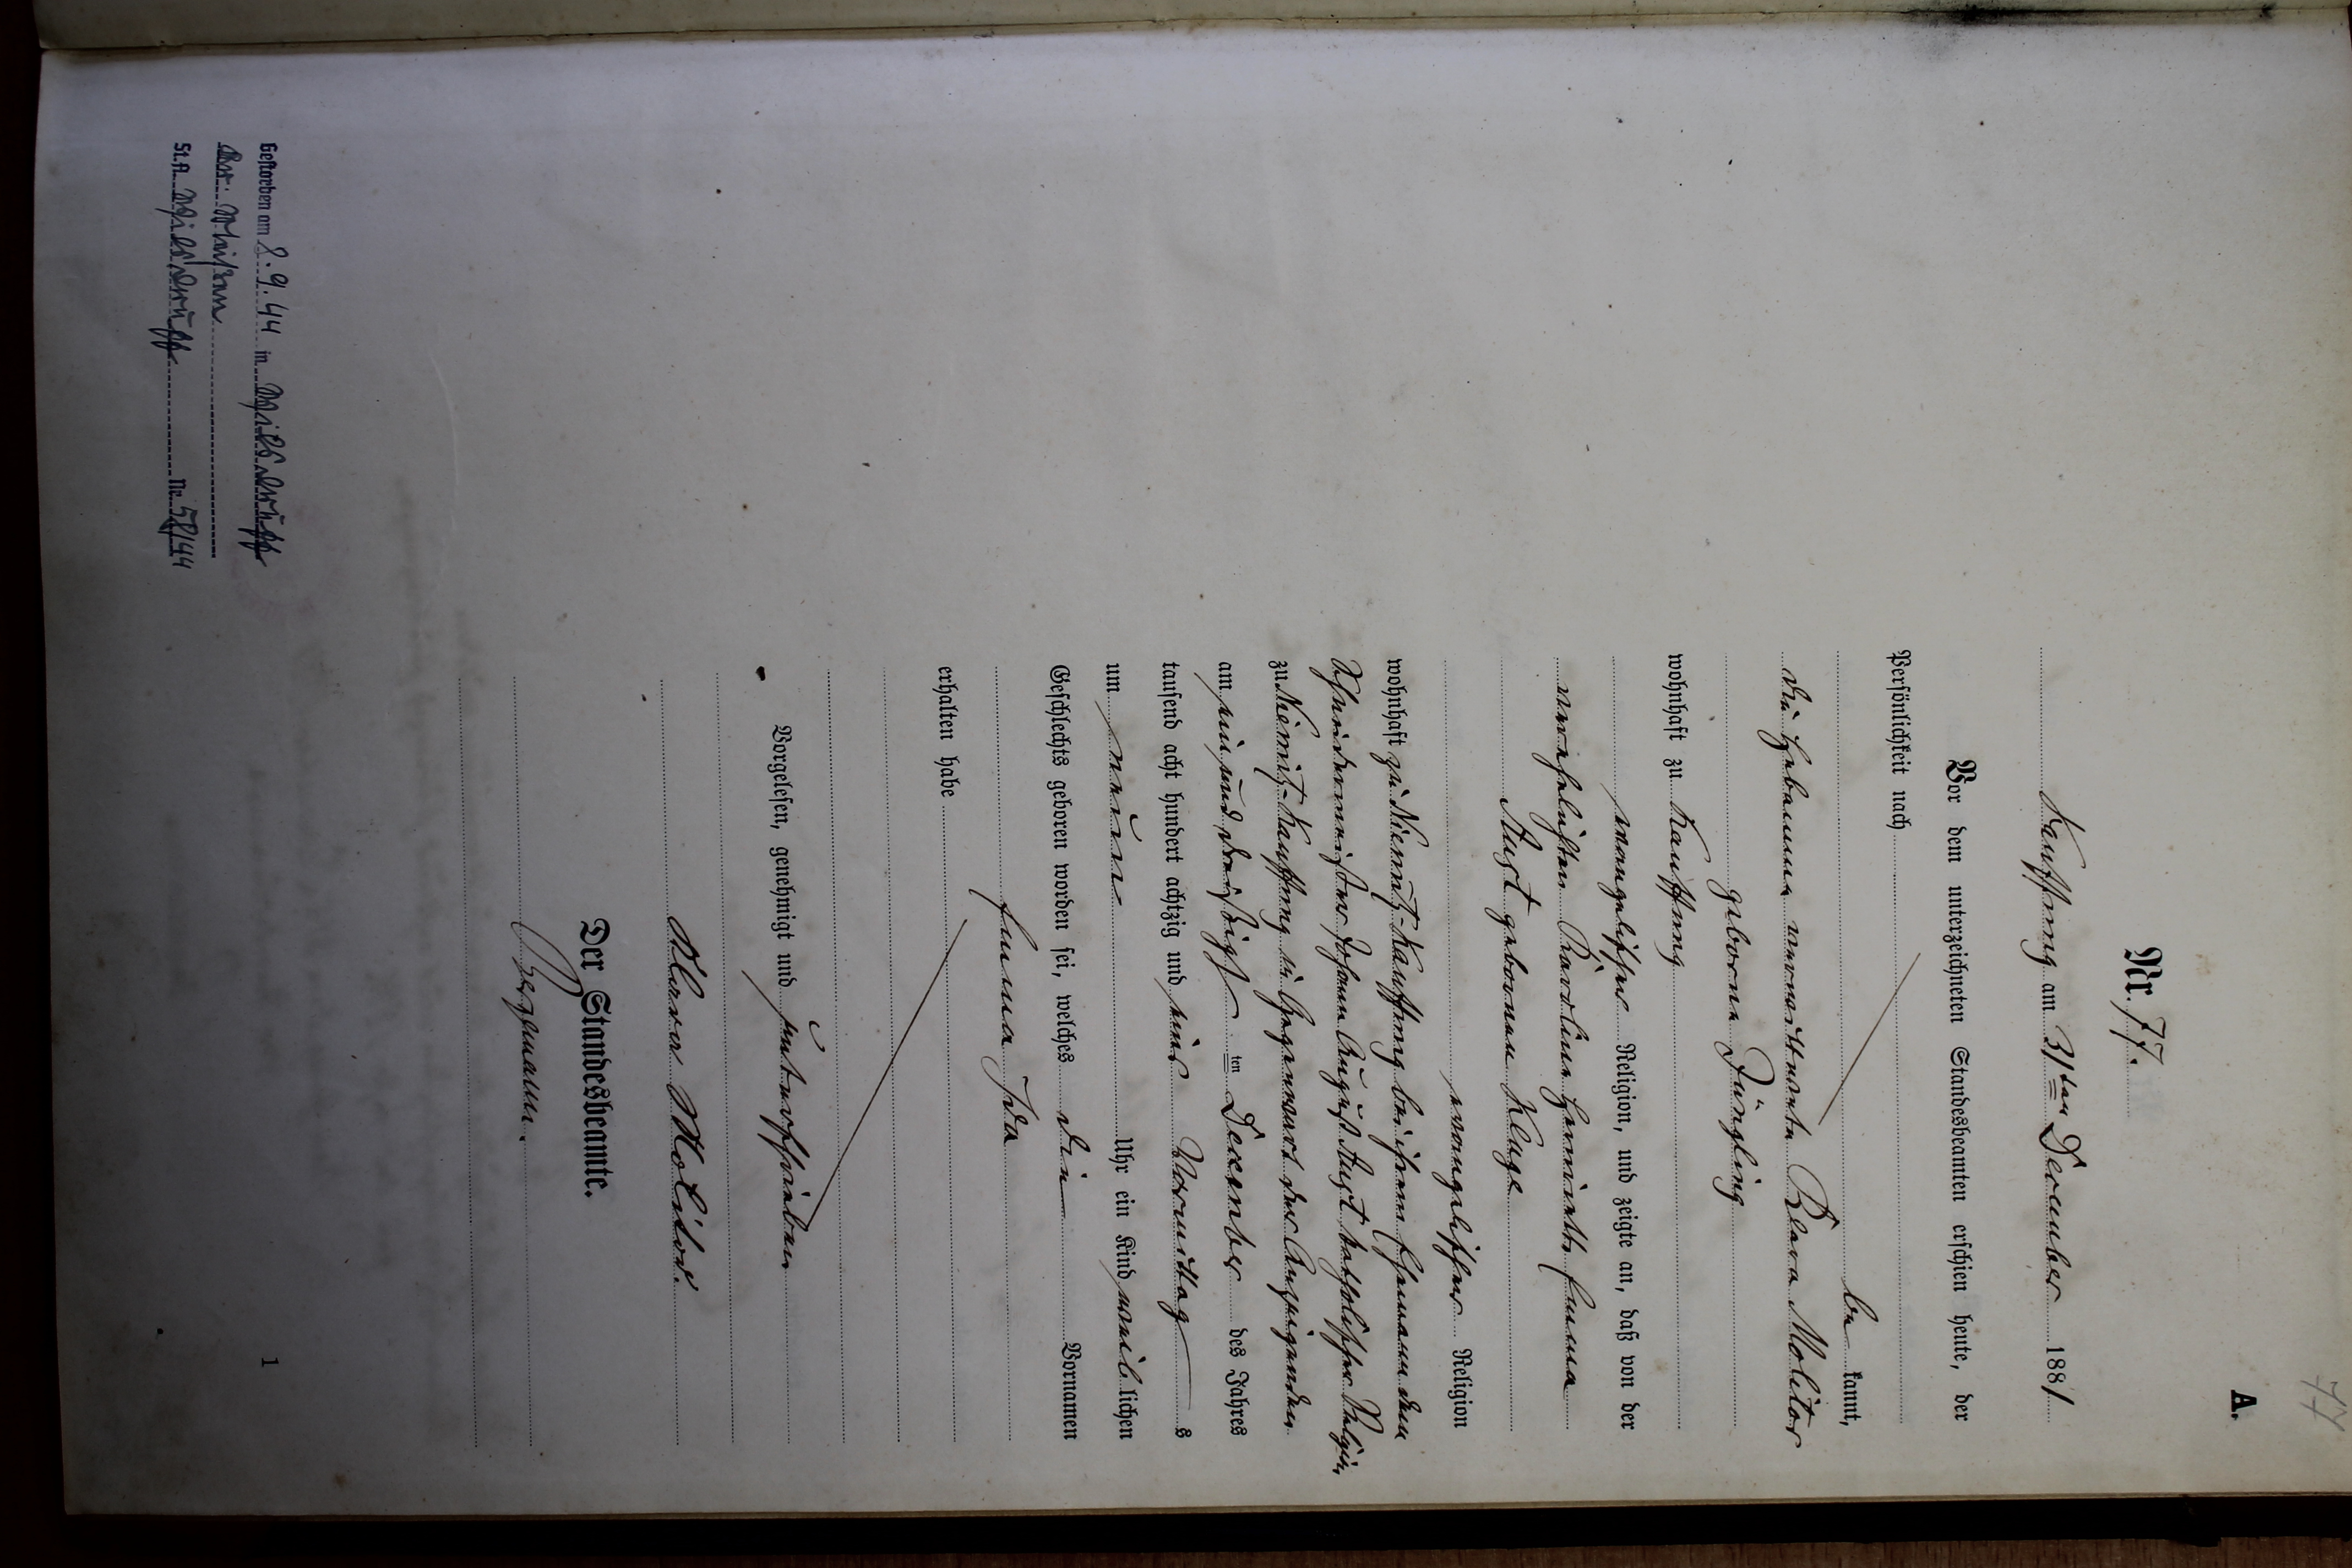 77
A.
Nr. 77.
Kauffung am 31ten December 1881
Vor dem unterzeichneten Standesbeamten erschien heute, der
Persönlichkeit nach
be kannt,
die Hebamme verwittwete Klara Molitor
geborne Jüngling
wohnhaft zu Kauffung
evangelischer Religion, und zeigte an, daß von der
verehelichten Karoline Henriette Emma
Aust geborenen Kluge
evangelischer Religion
wohnhaft zu Niemitz-Kauffung bei ihrem Ehemann dem
Schneidermeister Johann August Aust katholischer Religion
zu Niemitz-Kauffung in Gegenwart der Anzeigenden
am ein und dreißigst ten December des Jahres
tausend acht hundert achtzig und eins Vormittag s
um neun Uhr ein Kind weib lichen
Geschlechts geboren worden sei, welches die Vornamen
Emma Ida
erhalten habe
Vorgelesen, genehmigt und unterschrieben
Klara Molitor.
Der Standesbeamte.
Bergmann.
1
Gestorben am 8.9.44 in Wilsdruff
Kr. Meißen
St.A. Wilsdruff Nr. 58/44